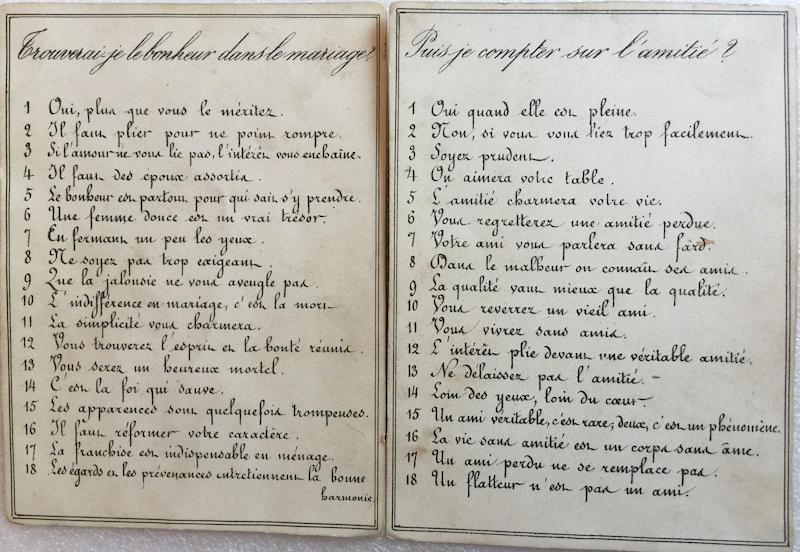 Trouverai-je le bonheur dans le mariage?
1 Oui, plus que vous le méritez.
2 Il faut plier pour ne point rompre.
3 Si l'amour ne vous lie pas, l'intérêt vous enchaîne.
4 Il faut des époux assortis.
5 Le bonheur est partout pour qui sait s'y prendre.
6 Une femme douce est un vrai trésor.
7 En fermant un peu les yeux.
8 Ne soyez pas trop exigeant.
9 Que la jalousie ne vous aveugle pas.
10 L'indifférence en mariage, c'est la mort
11 La simplicité vous charmera.
12 Vous trouverez l'esprit et la bonté réunis.
13 Vous serez un heureux mortel.
14 C'est la foi qui sauve.
15 Les apparences sont quelquefois trompeuses.
16 Il faut réformer votre caractère.
17 La franchise est indispensable en ménage.
18 Les égards et les prévenances entretiennent la bonne
harmonie.
Puis-je compter sur l'amitié?
1 Oui quand elle est pleine.
2 Non, si vous vous liez trop facilement.
3 Soyez prudent.
4 On aimera votre table.
5 L'amitié charmera votre vie.
6 Vous regretterez une amitié perdue.
7 Votre ami vous parlera sans fard.
8 Dans le malheur on connaît ses amis.
9 La qualité vaut mieux que la qualité.
10 Vous reverrez un vieil ami.
11 Vous vivrez sans amis.
12 L'intérêt plie devant une véritable amitié.
13 Ne délaissez pas l'amitié.
14 Loin des yeux, loin du cœur.
15 Un ami véritable, c'est rare; deux, c'est un phénomène.
16 La vie sans amitié est un corps sans âme.
17 Un ami perdu ne se remplace pas.
18 Un flatteur n'est pas un ami.